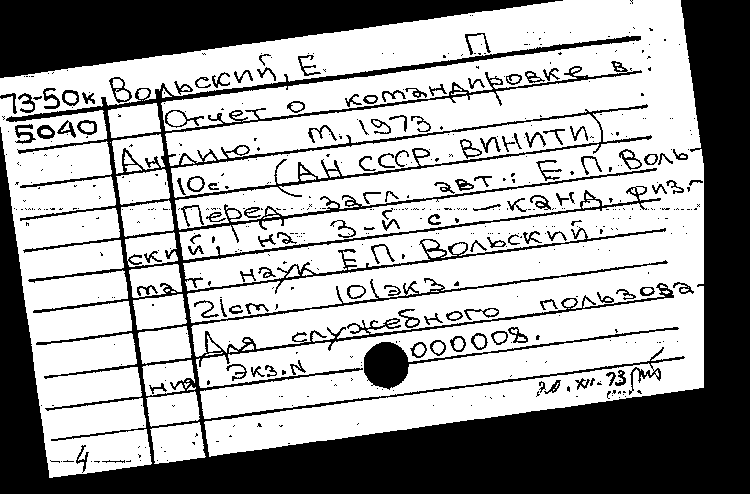 П
73-50к Вольский, Е
5040 Отчет о командировке в
Англию. М., 1973.
10с. (АН СССР. ВИНИТИ).
Перед загл. авт.: Е.П. Воль-
ский; на 3-й с. – канд. физ.-
мат. наук Е.П. Вольский.
21см. 101экз.
Для служебного пользова-
ния. Экз.N 000008.
20.XII.73
4